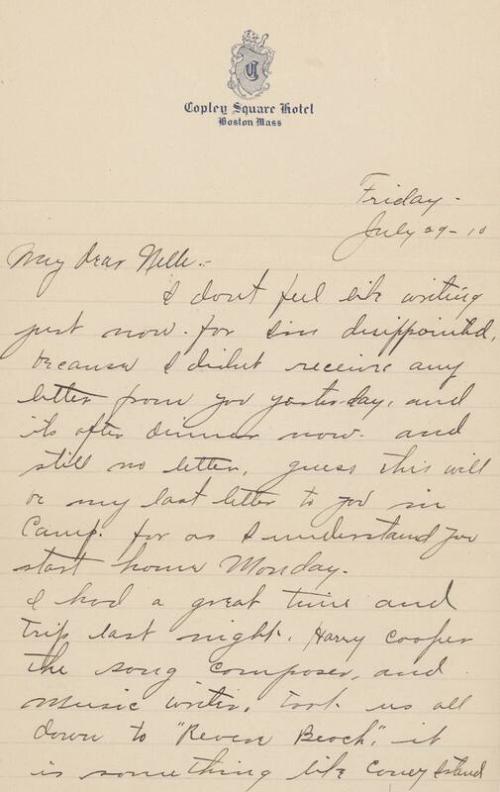 C
Copley Square Hotel
Boston Mass
Friday -
July 29 - 10
My dear Nelle:-
I dont feel like writing
just now. for Im disappointed,
because I didnt receive any
letter from you yesterday, and
its after dinner now. and
still no letter, guess this will
be my last letter to you in
Camp. for as I understand you
start home Monday.
I had a great time and
trip last night. Harry Cooper
the song composer, and
music writer, took us all
down to "Revere Beach", it
is something like Coney Island